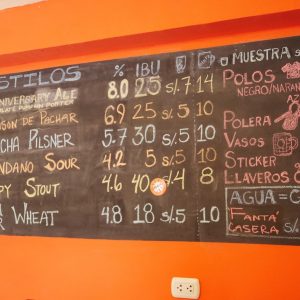 ESTILOS % IBU
ANNIVERSARY ALE 8.0 25 S/.7 14
SON DE PACHAR 6.9 25 S/.5 10
CHA PILSNER 5.7 30 S/.5 10
NDANO SOUR 4.2 5 S/.4
PY STOUT 4.6 40 8
WHEAT 4.8 18 S/.5 10
MUESTRA
POLOS
NEGRO/NARAN
POLERA
VASOS
STICKER
LLAVEROS
AGUA =
FANTA
CASERA S/.